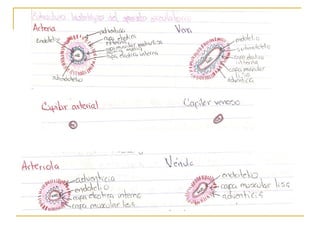 Estructura histológica del aparato circulatorio
Arteria
endotelio
adventicia
capa elastica
externa
capa muscular
capa elastica interna
subendotelio
Vena
endotelio
subendotelio
capa elastica
interna
capa muscular
lisa
adventicia
Capilar arterial
Capilar venoso
Arteriola
adventicia
endotelio
capa elastica interna
capa muscular lisa
Vénula
endotelio
capa muscular lisa
adventicia